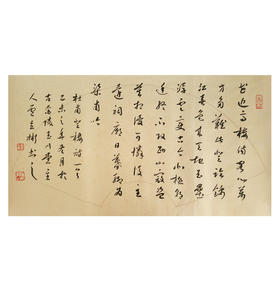 花近高樓傷客心萬
方多難此登臨錦
江春色來天地玉壘
浮雲變古今北極朝
廷終不改西山寇盗
莫相侵可憐後主
還祠廟日暮聊為
梁甫吟
杜甫登樓詩一首
之年 月於
古 主
人 書之